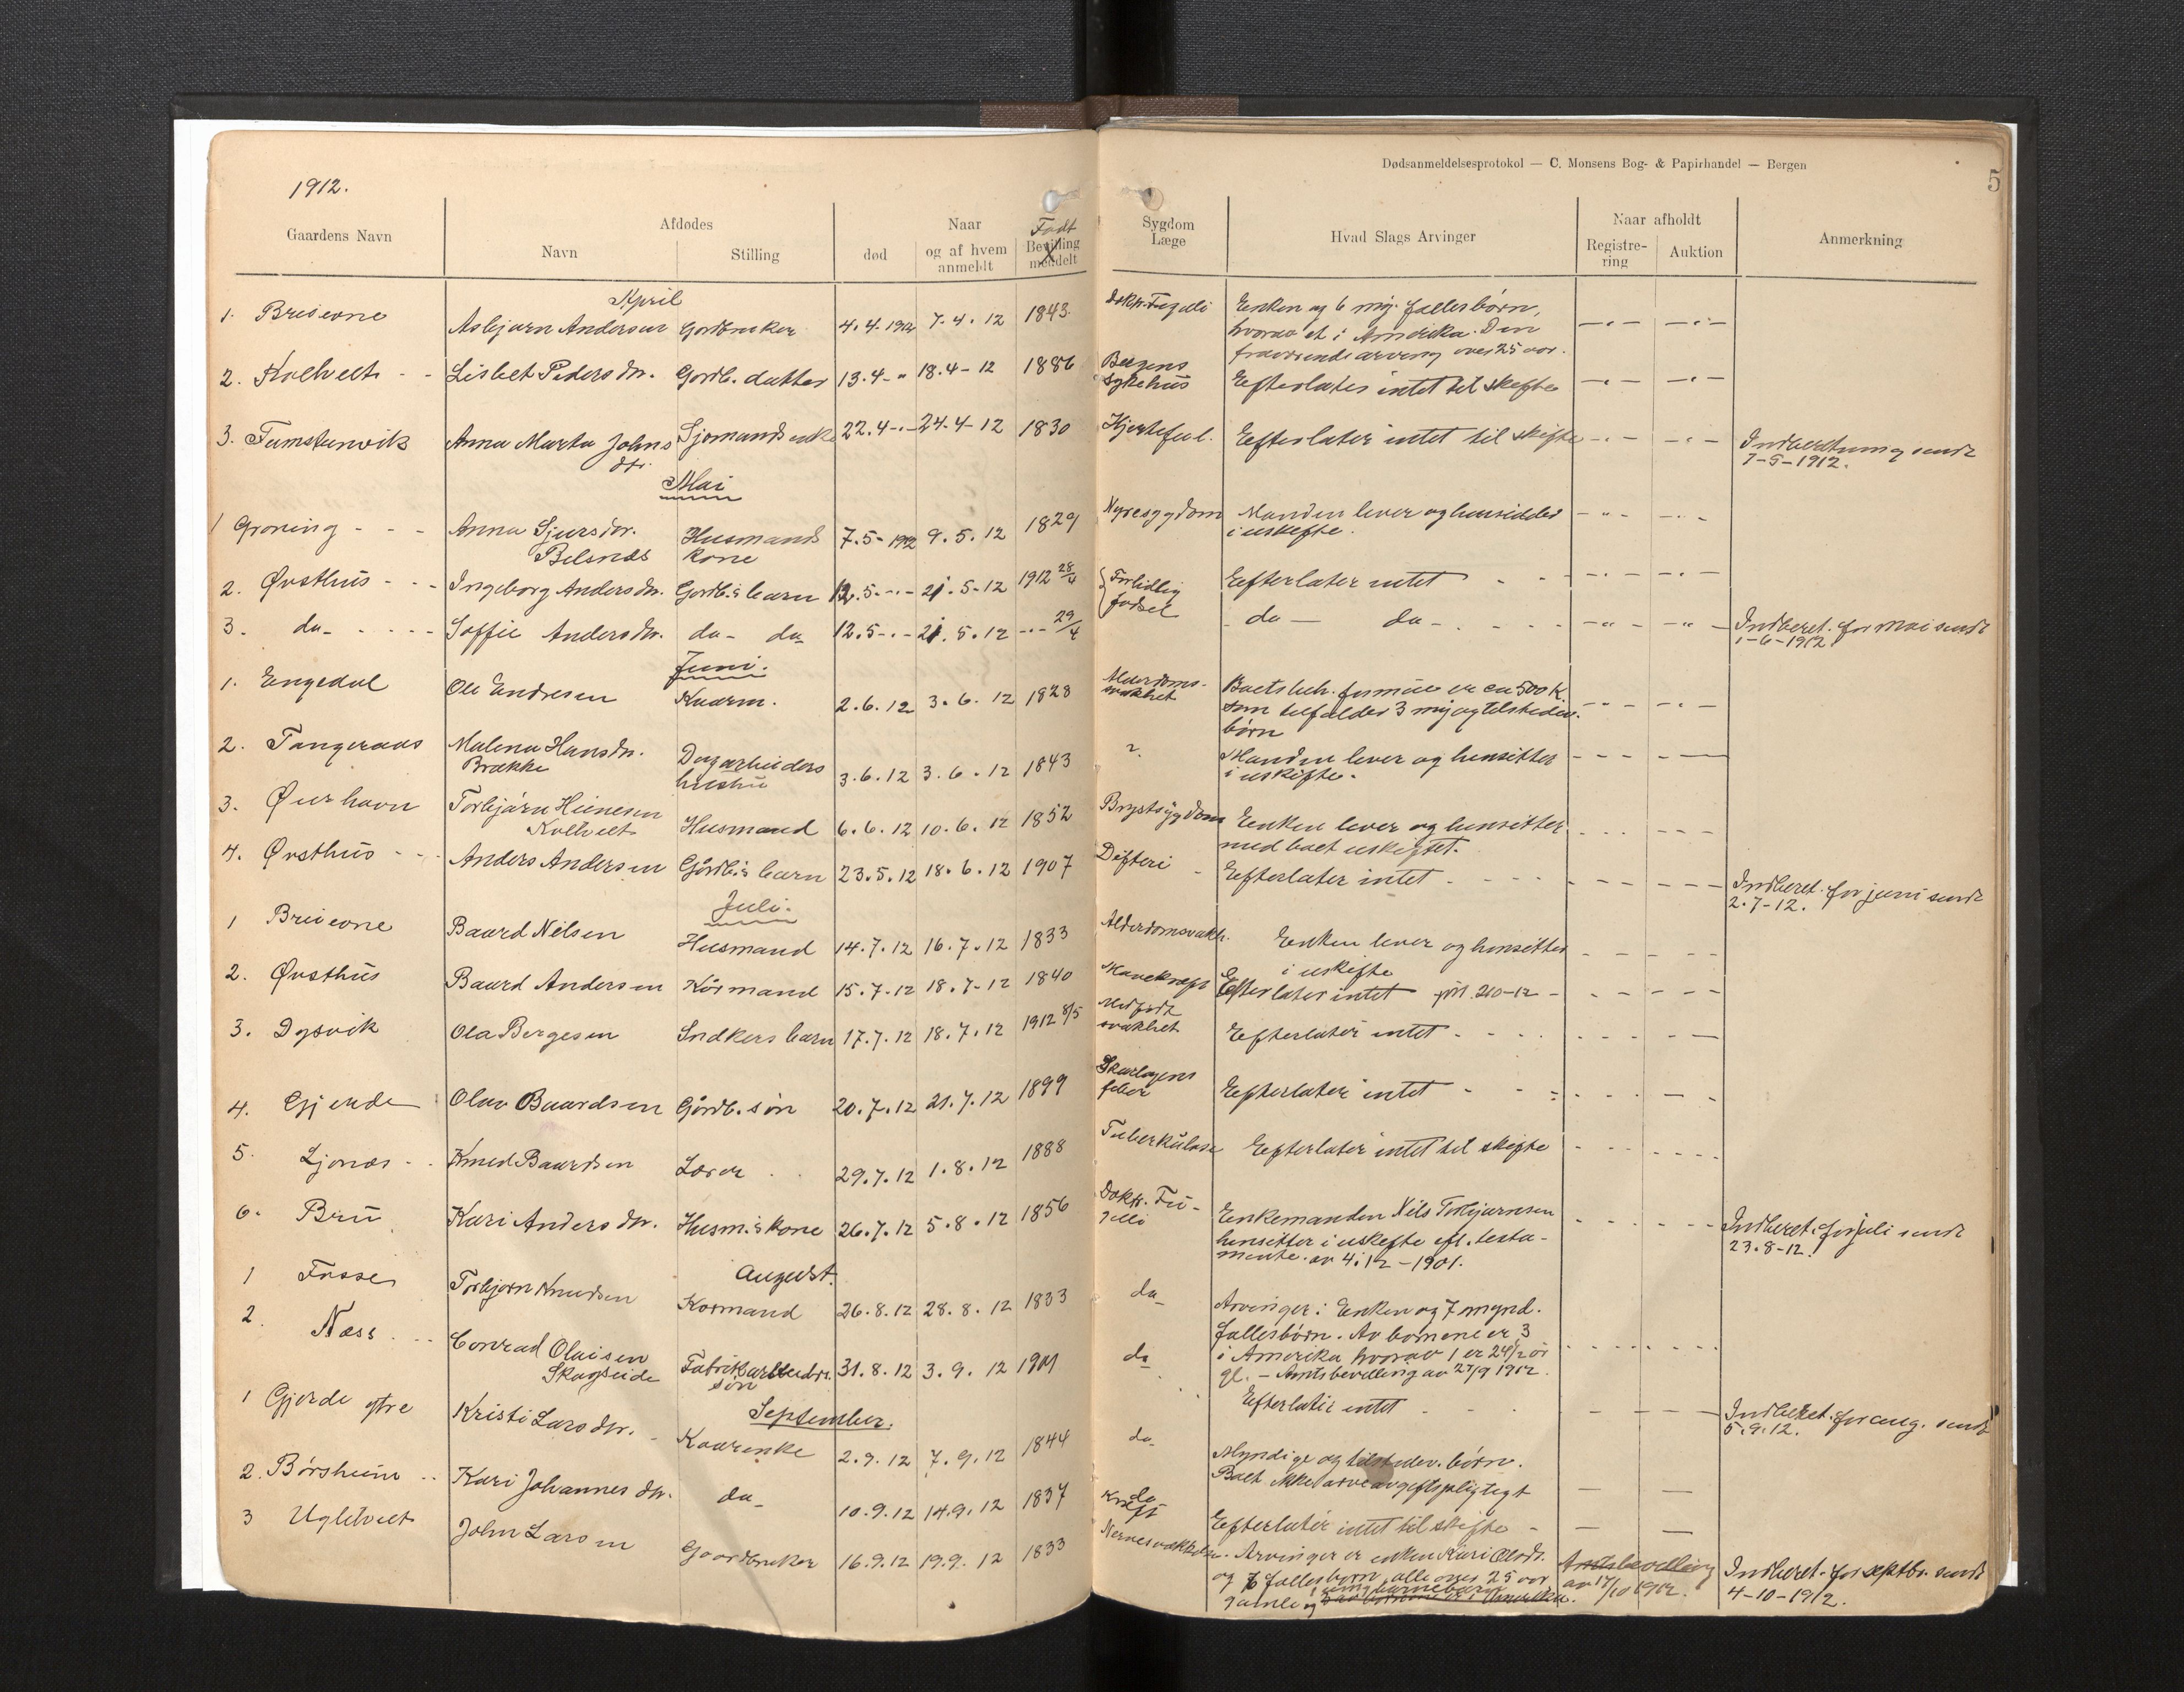 Dødsanmeldelsesprotokol — C. Monsens Bog- & Papirhandel — Bergen
5
1912.
Gaardens Navn
Afdødes
Navn
Stilling
død
Naar
og af hvem
anmeldt
Født
Bevilling
meddelt
Sygdom
Læge
Hvad Slags Arvinger
Naar afholdt
Registre-
ring
Auktion
Anmerkning
April
1. Breievne Asbjørn Andersen Gardbruker 4.4.1912 7.4.12 1843 Dokt. Fugelli Enken og 6 myg. fællesbørn,
hvorav et i Amerika. Den
fraværende arving over 25 aar.
2. Kolltveit - - Lisbet Pedersdtr. Gardb. datter 13.4-" 18.4-12 1886 Bergens
sykehus Efterlater intet til skifte
3. Tumstenvik Anna Marta Johns
dtr. Sjømands enke 22.4-"-24.4-12 1830 Hjertefeil. Efterlater intet til skifte Indberetning sendt
7-5-1912.
Mai
1 Grøning - - - Anna Sjursdtr.
Belsnes Husmands
kone 7.5-1912 9.5.12 1829 Nyresygdom Manden lever og hensidder
i uskifte.
2. Øvsthus - - - Ingeborg Andersdtr. Gardb.s barn 12.5-"- 21.5-12 1912 28/4 Fortidlig
fødsel Efterlater intet - - -
3. do- - - - - Soffie Andersdtr. do- do- 12.5-"- 21.5.12 -"- 29/4 - do - do - Indberet. for Mai sendt
1-6-1912
Juni.
1. Engedal Ole Endresen Kaarm. 2.6.12 3.6.12 1828 Alderdoms-
svakhet Boets beh. formue er ca 500 K.
som tilfalder 3 myg tilstedev.
børn
2. Tangeraas Malena Hansdtr.
Brække Dagarbeiders
hustru 3.6.12 3.6.12 1843 ? Manden lever og hensitter
i uskifte.
3. Øierhavn Torbjørn Heinesen
Kolltveit Husmand 6.6.12 10.6.12 1852 Brystsygdom Enken lever og hensitter
med boet uskiftet.
4. Øvsthus - - Anders Andersen Gårdb.s barn 23.5.12 18.6.12 1907 Difteri - Efterlater intet - - - - Indberet. for juni sendt
2.7-12.
Juli.
1 Breievne Baard Nilsen Husmand 14.7.12 16.7.12 1833 Alderdomsvakh. Enken lever og hensitter
i uskifte
2. Øvsthus Baard Andersen Kårmand 15.7-12 18.7-12 1840 Mavekræft Efterlater intet
3. Dysvik Ola Børgesen Snekers barn 17.7.12 18.7.12 1912 8/5 Medfødt
svakhet Efterlater intet - - - -
4. Gjerde Olav Baardsen Gårdb. søn 20.7.12 21.7.12 1899 Skarlagens
feber Efterlater intet - - -
5. Ljones - - Knud Baardsen Lærer 29.7.12 1.8.12 1888 Tuberkulose Efterlater intet til skifte
6. Bru Kari Andersdtr. Husm.s kone 26.7.12 5.8.12 1856 Dokt. Fu-
gelli Enkemanden Nils Torbjørnsen
hensitter i uskifte eft. testa-
mente. av 4.12-1901. Indberet. for juli sendt
23.8-12.
August.
1 Fosse Torbjørn Knudsen Kormand 26.8.12 28.8.12 1833 do- Arvinger: Enken og 7 mynd.
fællesbørn. Av børnene er 3
i Amerika hvorav 1 er 24 1/2 år
gl. - Amtsbevilling av 27/9 1912.
2. Næss - - Conrad Olaisen
Skogseide Fabrikarbeiders
søn 31.8.12 3.9.12 1901 do - Efterlater intet - - - Indberet. for aug. sendt
5.9.12.
September.
1 Gjerde ytre Kristi Larsdtr. - Kaarenke 2.9.12 7.9.12 1844 do- Myndige og tilstedev. børn.
Boet ikke arveavgiftspligtigt
2. Børsheim - - Kari Johannesdtr. do- 10.9.12 14.9.12 1837 do-
Kræft Efterlater intet til skifte -
3 Ugletveit John Larsen Gaardbruker 16.9.12 19.9.12 1833 Nervesvækkelse. Arvinger er enken Kari Olsdtr.
og 6 fællesbørn alle over 25 aar
gamle og 1 umg. barnebarn Amtsbevilling
av 17/10 1912. Indberet. for septbr. sendt
4-10-1912.